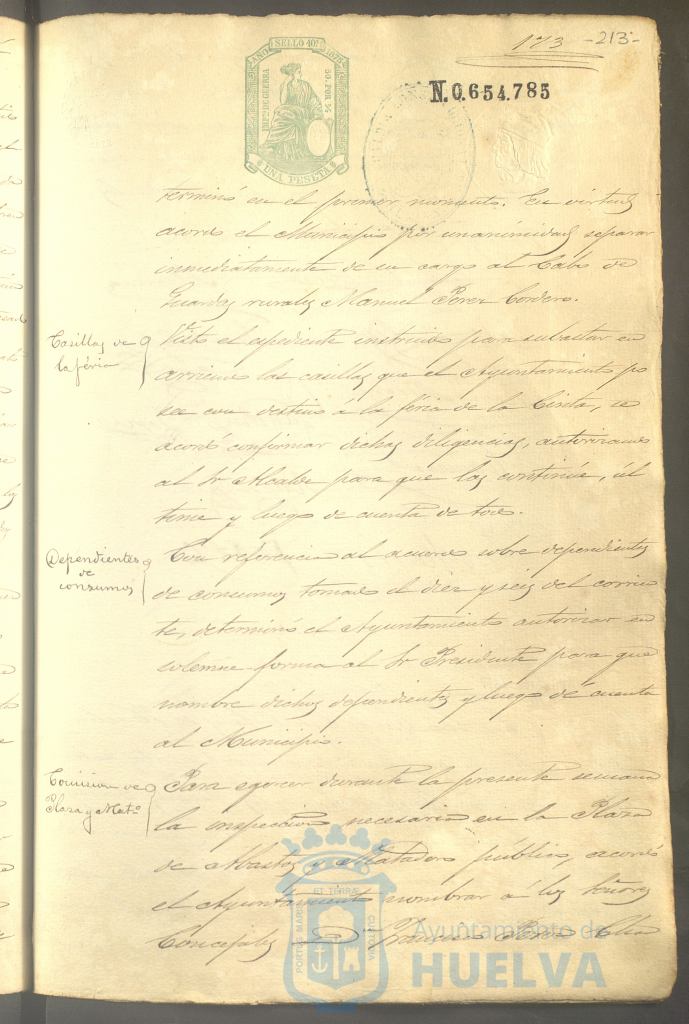 173 -213-
AÑO SELLO 10º 1878
IMPº DE GUERRA
50 POR %
UNA PESETA
N.0.654.785
terminó en el primer momento. En virtud
acordó el Municipio por unanimidad separar
inmediatamente de su cargo al Cabo de
Guardas rurales Manuel Perez Cordero.
Casillas de
la féria
Visto el espediente instruido para subastar en
arriendo las casillas que el Ayuntamiento po
see con destino á la féria de la Cinta, se
acordó confirmar dichas diligencias, autorizando
al Sr Alcalde para que las continúe, úl
time y luego dé cuenta de todo.
Dependientes
de
consumos
Con referencia al acuerdo sobre dependientes
de consumos tomado el diez y seis del corrien
te, determinó el Ayuntamiento autorizar en
solemne forma al Sr Presidente para que
nombre dichos dependientes y luego dé cuenta
al Municipio.
Comision de
Plaza y Matº
Para egercer durante la presente semana
la inspeccion necesaria en la Plaza
de Abastos y Matadero público, acordó
el Ayuntamiento nombrar á los Señores
Concejales Dn Francisco Perez
PORTUS MARIS ET TERRAE CUSTODIA
Ayuntamiento de
HUELVA